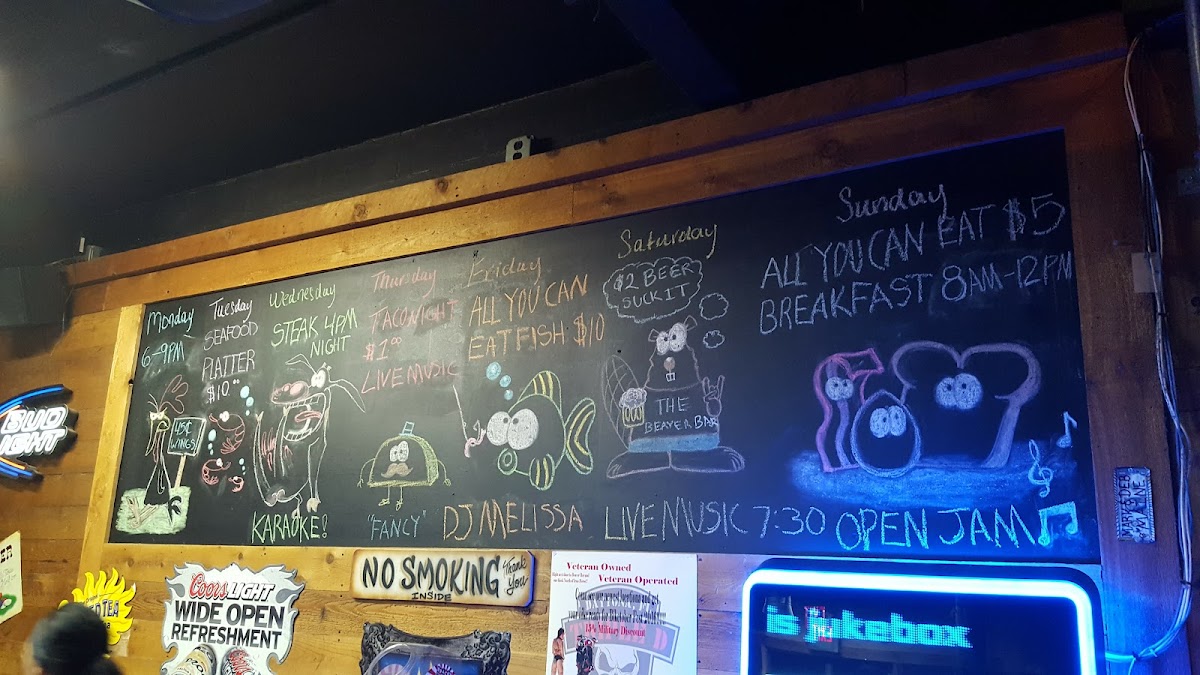 Monday
6-9PM
45¢
WINGS
Tuesday
SEAFOOD
PLATTER
$10.00
Wednesday
STEAK 4PM
NIGHT
KARAOKE!
Thursday
TACO NIGHT
$1.00
LIVE MUSIC
"FANCY"
Friday
ALL YOU CAN
EAT FISH $10
DJ MELISSA
Saturday
$2 BEER
SUCK IT
THE
BEAVER BAR
LIVE MUSIC 7:30
Sunday
ALL YOU CAN EAT $5
BREAKFAST 8AM-12PM
OPEN JAM
BUD
LIGHT
TEA
Coors LIGHT
WIDE OPEN
REFRESHMENT
NO SMOKING
INSIDE
Thank
You
Veteran Owned
Veteran Operated
15% Military Discount
is jukebox
MARK & DEB